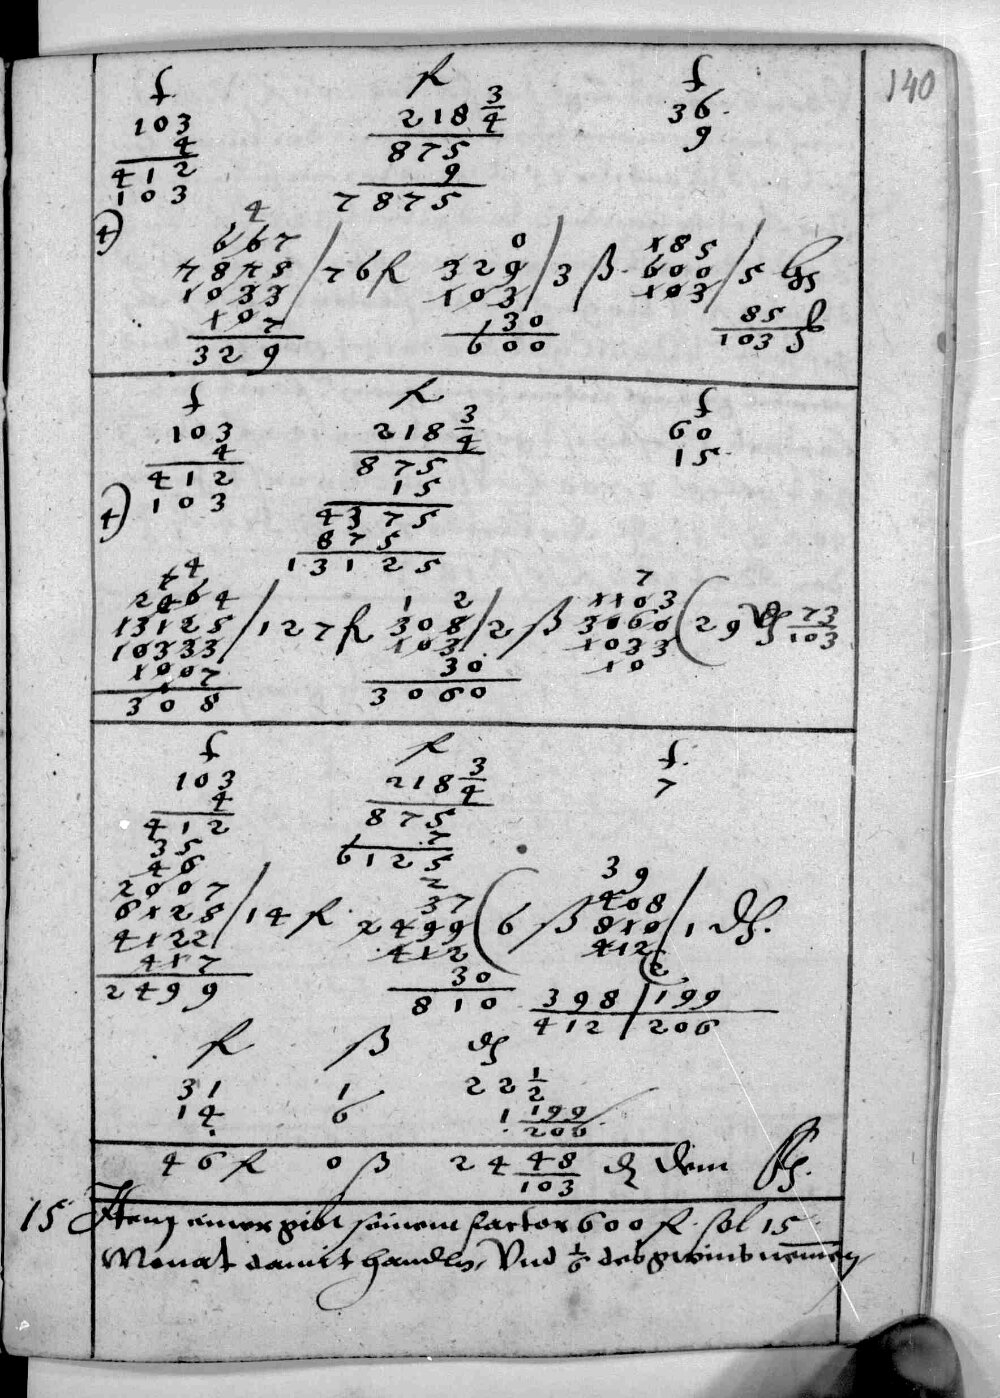 140
f fl f
103 218 3/4 36.
4 875 9
412 9
103 7875
4)
4
667 0 185
7875 / 76 fl 329 / 3 ß. 600 / 5
1033 103 103
107 130 85
329 600 103
f fl f
103 218 3/4 60
4 875 15.
412 15
4) 103 4375
875
13125
2464 1 2 1103
13125 / 127 fl 308 / 2 ß 3060 ( 29 ₰ 73/103
10333 103 1033
1007 30 10
308 3060
f fl f.
103 218 3/4 7
4 875
412 7
35 6125
46 2 39
2007 37 408
6125 / 14 fl. 2499 ( 6 ß 810 / 1 ₰.
4122 412 412
417 30 2
2499 810 398 | 199
412 | 206
fl ß ₰
31 1 22 1/2
14 6 1 199/206
46 fl 0 ß 24 48/103 ₰ dem
15 Item einer gibt seinem factor 600 fl. sol 15
Monat damit handln, Vnd 1/6 des gewins nemen